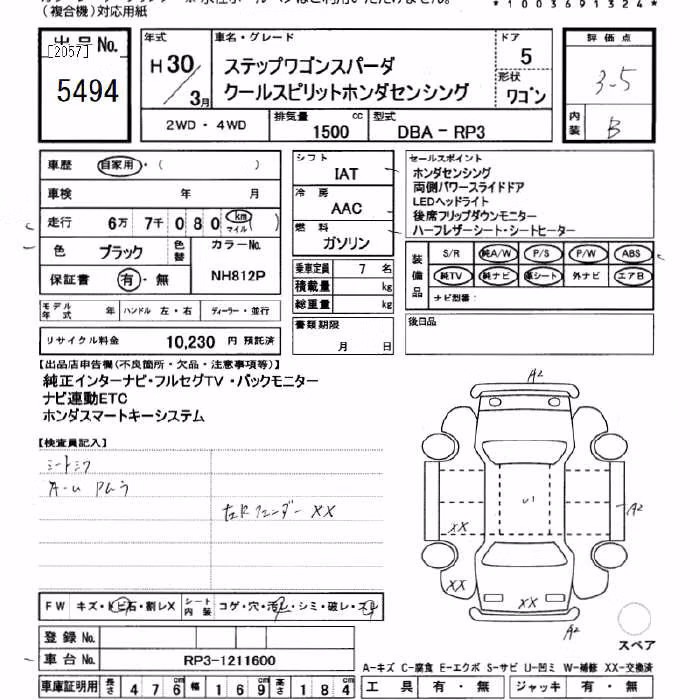 (複合機)対応用紙
*1003691324*
出品No.
[2057]
5494
年式
H30
3月
車名・グレード
ステップワゴンスパーダ
クールスピリットホンダセンシング
ドア
5
形状
ワゴン
2WD・4WD
排気量
1500 cc
型式
DBA-RP3
評価点
3-5
内装
B
車歴 自家用・( )
車検 年 月
走行 6万7千080 km マイル( )
色 ブラック 色替 カラーNo.
保証書 有・無 NH812P
モデル年式 年 ハンドル 左・右 ディーラー・並行
リサイクル料金 10,230 円 預託済
シフト
IAT
冷房
AAC
燃料
ガソリン
乗車定員 7 名
積載量 kg
総重量 kg
書類期限
月 日
セールスポイント
ホンダセンシング
両側パワースライドドア
LEDヘッドライト
後席フリップダウンモニター
ハーフレザーシート・シートヒーター
装備品
S/R 純A/W P/S P/W ABS
純TV 純ナビ 革シート 外ナビ エアB
ナビ型番:
後日品
【出品店申告欄(不良箇所・欠品・注意事項等)】
純正インターナビ・フルセグTV・バックモニター
ナビ連動ETC
ホンダスマートキーシステム
【検査員記入】
シートシワ
XX
FW キズ・トビ石・割レX シート内装 コゲ・穴・汚レ・シミ・破レ・スレ
登録No.
車台No. RP3-1211600
車庫証明用 長さ 476 幅 169 高さ 184
A2
U1
A2
XX
XX
XX
A2
スペア
A-キズ C-腐食 E-エクボ S-サビ U-凹ミ W-補修 XX-交換済
工具 有・無 ジャッキ 有・無